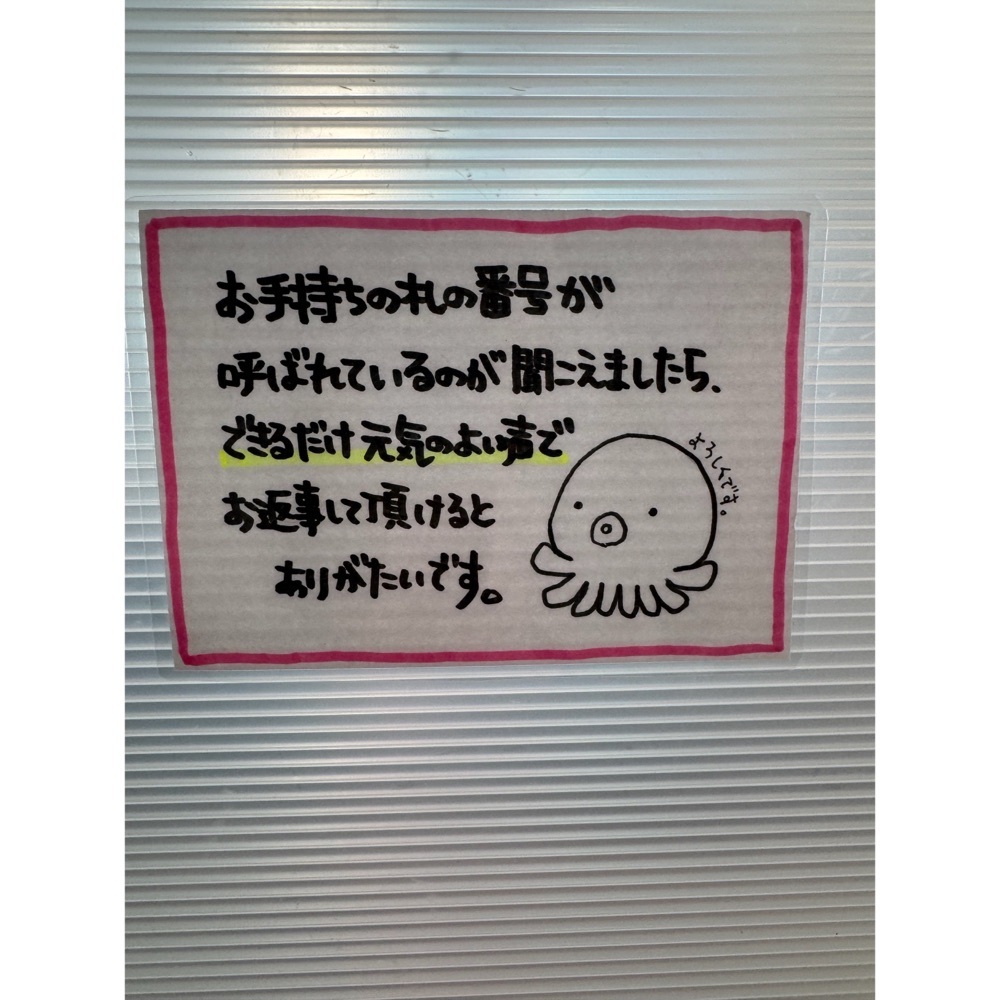 お手持ちの札の番号が
呼ばれているのが聞こえましたら、
できるだけ元気のよい声で
お返事して頂けると
ありがたいです。
よろしくです。